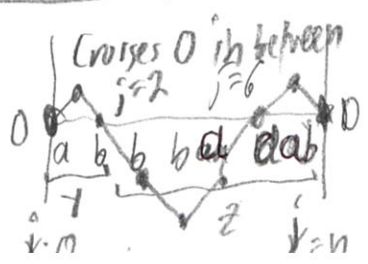 Crosses 0 in between
j=2 j=6
0 0
a b b b a a a b
y z
j=0 j=n